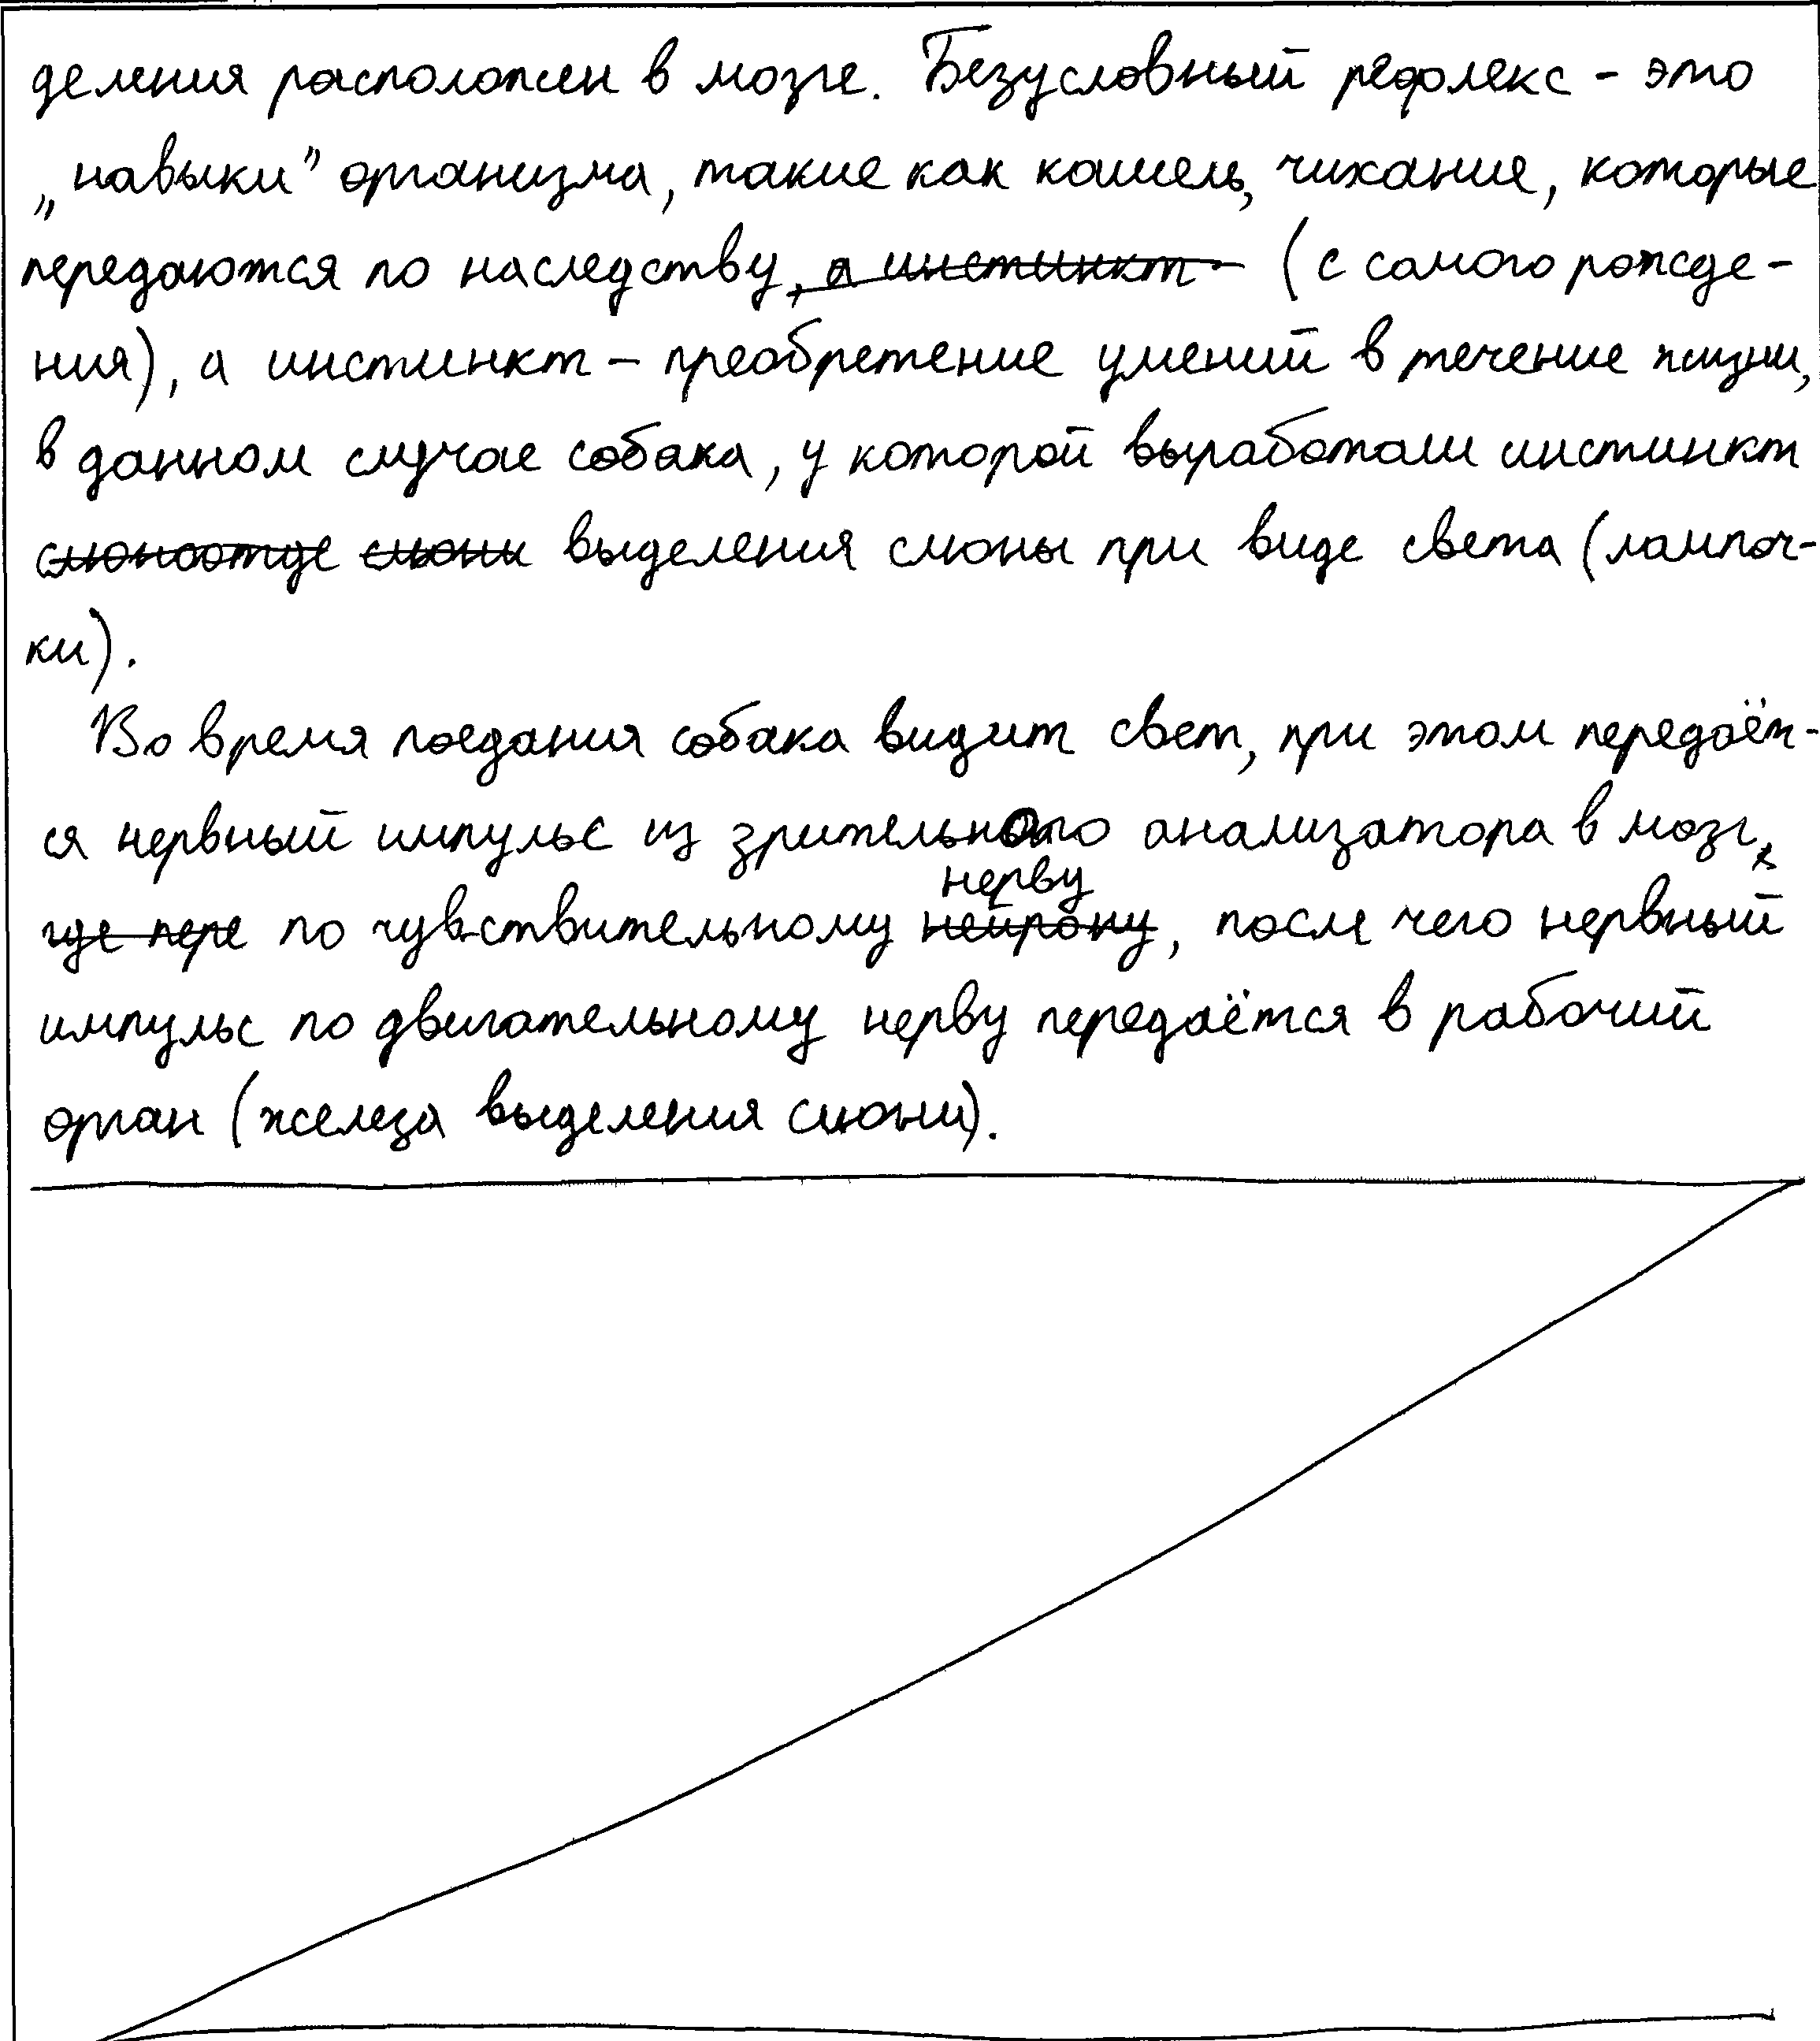 деления расположен в мозге. Безусловный рефлекс - это
„навыки” организма, такие как кашель, чихание, которые
передаются по наследству, а инстинкт - (с самого рожде-
ния), а инстинкт – преобретение умений в течение жизни,
в данном случае собака, у которой выработали инстинкт
слюноотде слюни выделения слюны при виде света (лампоч-
ки).
Во время поедания собака видит свет, при этом передаёт-
ся нервный импульс из зрительного анализатора в мозг,
нерву
где пере по чувствительному нейрону, после чего нервный
импульс по двигательному нерву передаётся в рабочий
орган (железа выделения слюни).